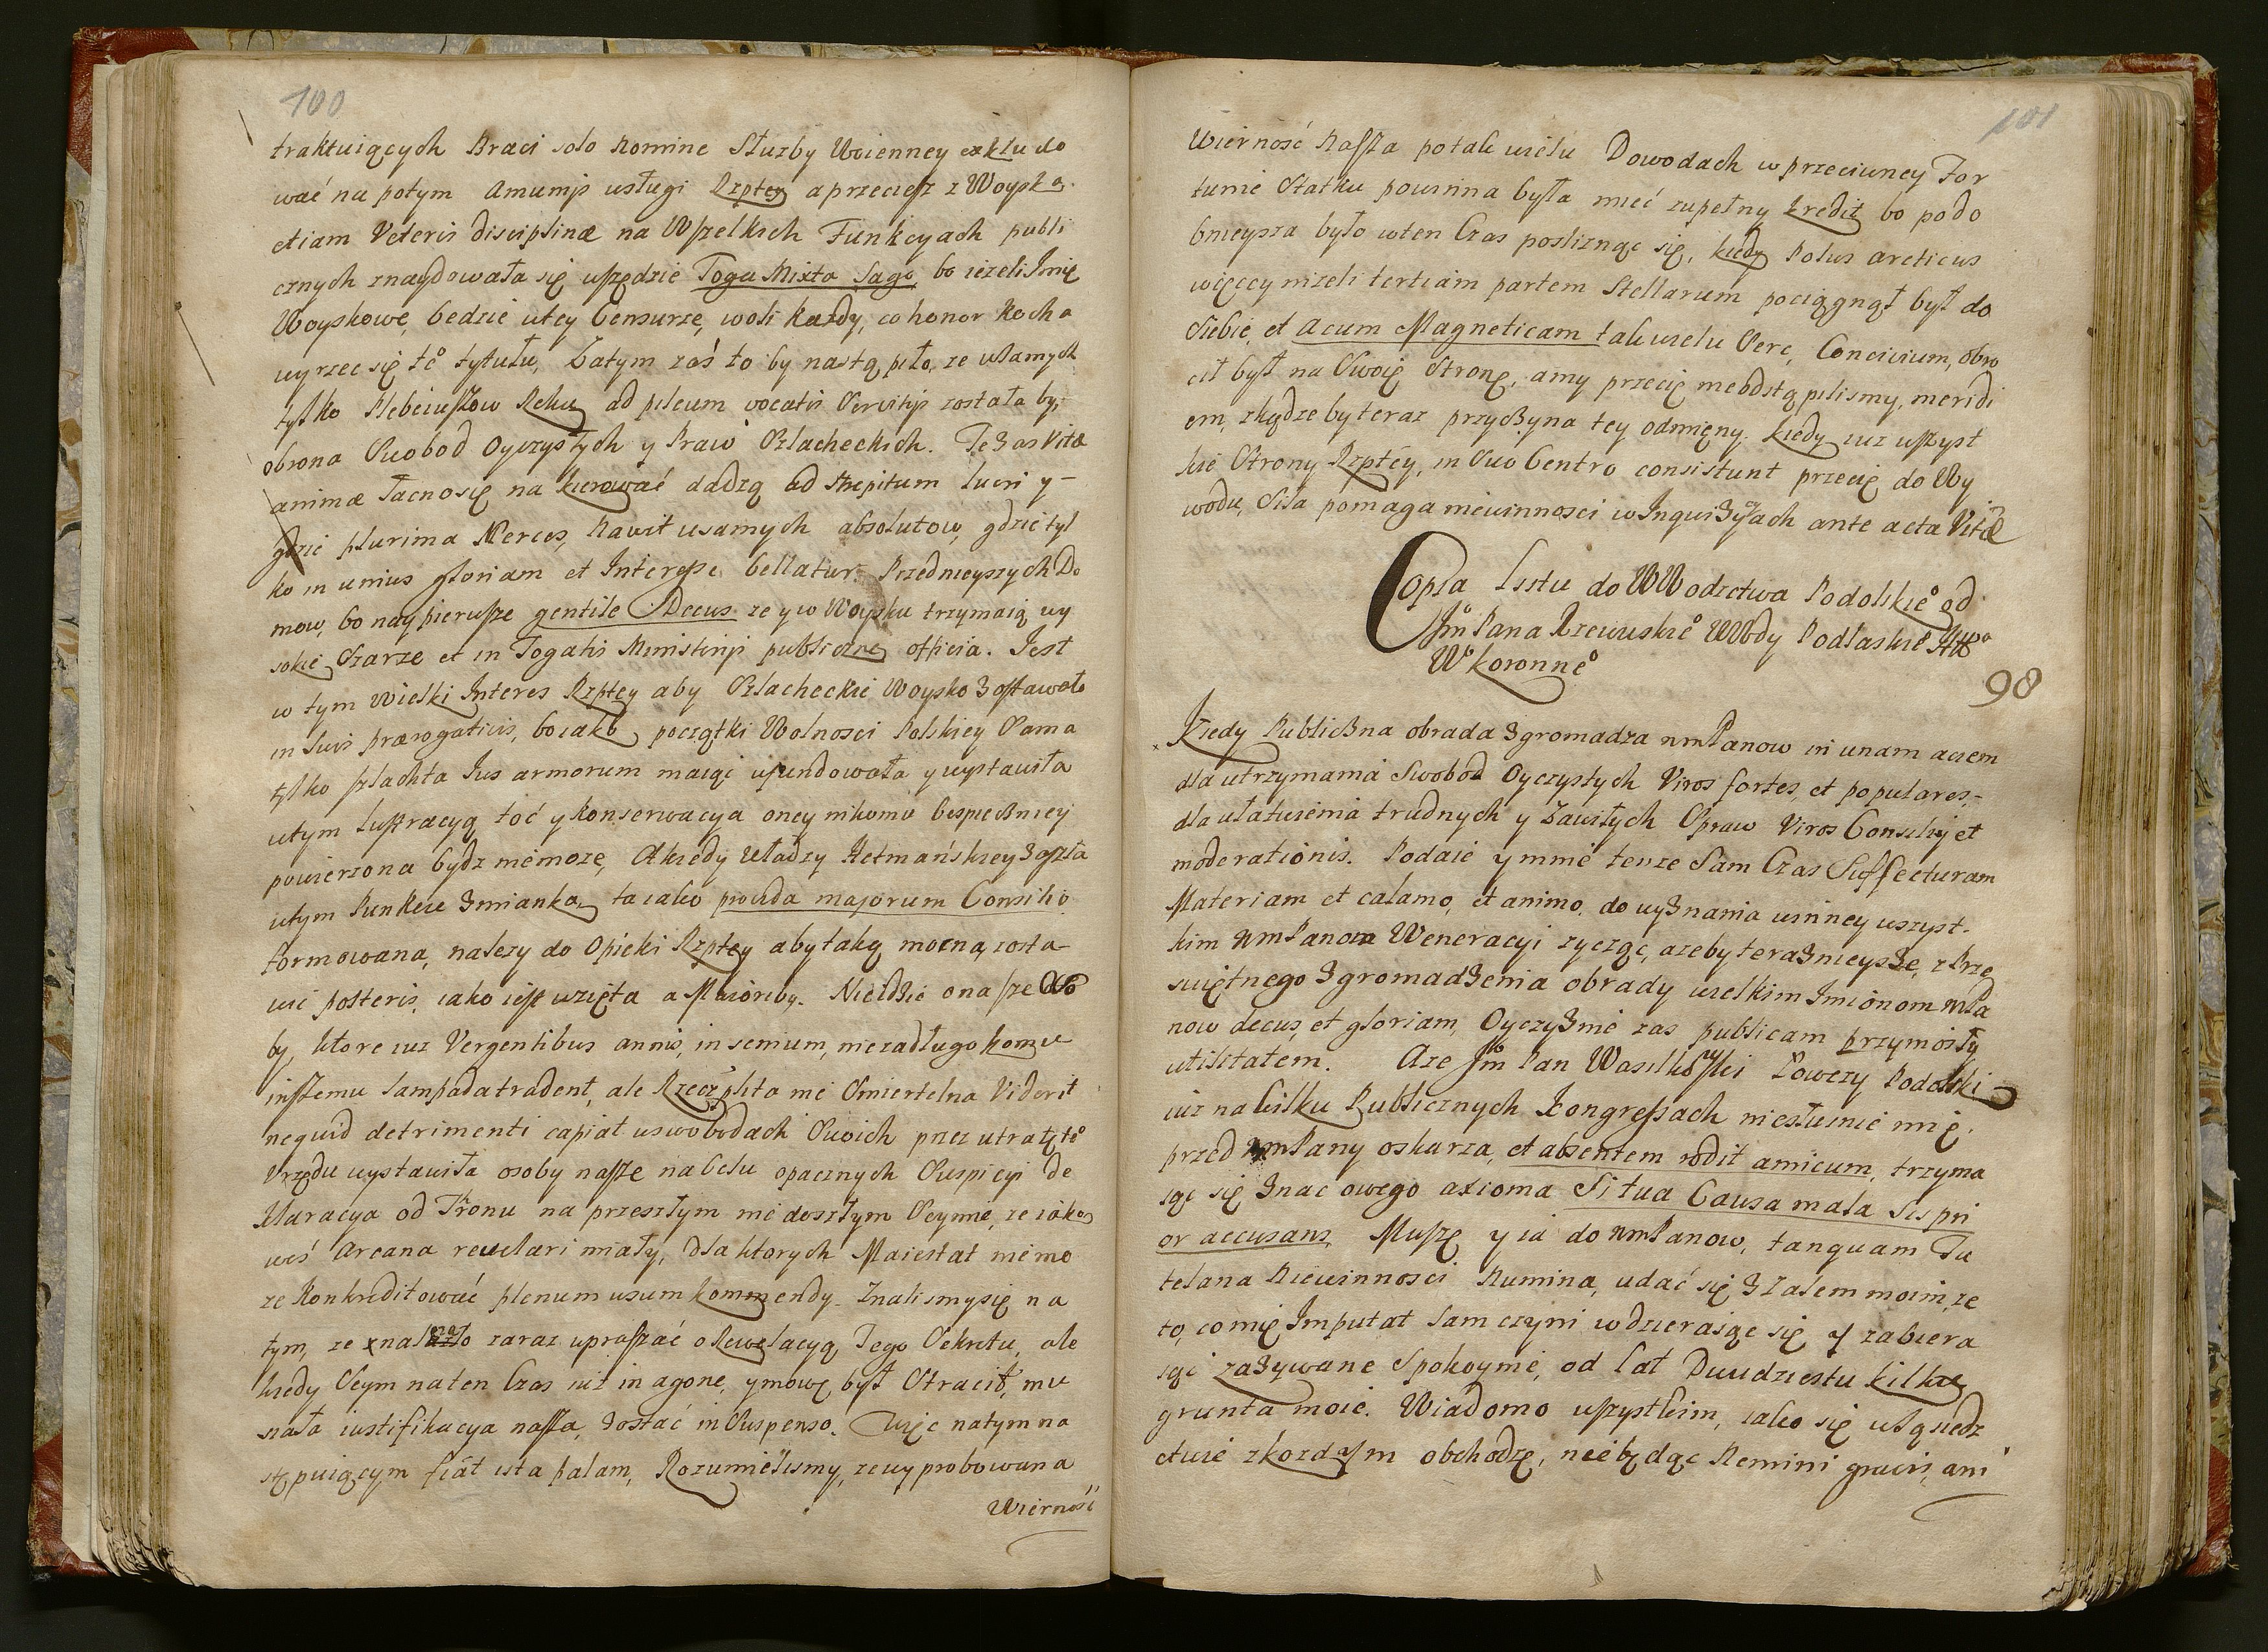 100
traktuiących Braci solo Nomine Służby Woienney exkludo
wać na potym a munijs usługi Rzptey a przeciesz z Woyska
etiam Veteris disciplinæ na Wszelkich Funkcyach publi
cznych znaydowała się wszędzie Toga Mixta Sago, bo ieżeli Imię
Woyskowe, bedzie w tey Censurze, woli każdy, co honor kocha
wyrzec się teͦ tytułu, Zatym zaś to by nastąpiło, ze w samych
tylko Plebeiuszow Ręku ad pileum vocatis Servitijs została by,
obrona Swobod Oyczystych y Praw Szlacheckich. Te zas Vitæ
animæ łacno się na kierować dadzą ad strepitum lucri y-
gdzie plurima Merces, Nawet u samych absolutow, gdzie tyl
ko in unius gloriam et Interesse bellatur. Przednieyszych Do
mow, bo naypierwsze gentile Decus ze y w Woysku trzymaią wy
sokie Szarze et in Togatis Ministerijs publiczne officia. Jest
w tym Wielki Interes Rzptey aby Szlacheckie Woysko Zostawało
in suis prærogativis, bo iako początki Wolnosci Polskiey Sama
tylko szlachta Ius armorum maiąc ufundowała y wystawiła
w tym lustracyą toć y konserwacya oney nikomu bespieczniey
powierzona bydz niemoze, A kiedy Władzy Hetmańskiey Zaszła
w tym Punkcie Zmianka, ta iako provida majorum Consilio
formowana, nalezy do Opieki Rzptey aby taką mocną zosta-
wić posteris, iako iest wzięta a Maioriby. Nie idzie ona sze Oso
by, ktore iuz Vergentibus annis, in senium, niezadługo komu
inszemu lampada tradent, ale Rzeczplita nie Smiertelna Viderit
nequid detrimenti capiat w swobodach Swoich przez utratę teͦ
Vrzędu wystawiła osoby nasze na Celu opacznych Suspicyi De
klaracya od Tronu na przeszłym nie doszłym Seymie, ze iako
weś Arcana revelari miały, dla ktorych Maiestat nie mo
ze Konkreditować plenum usum kommendy. Znalismy się na
tym, ze nalezało zaraz upraszać o Rewelacyą Tego Sekretu, ale
kiedy Seym na ten Czas iuż in agone, y mowę był Stracił, mu
siała iustifikacya nasza, zostać in Suspenso. Więc na tym na
stępuiącym fiat ista palam, Rozumielismy, ze wyprobowana
Wierność
101
Wierność Nasza po tak wielu Dowodach w przeciwney For
tunie Statku powinna była mieć zupełny kredit bo podo
bnieysza było w ten Czas posliznąc się, kiedy Polus arcticus
więcey nizeli tertiam partem Stellarum pociągnął był do
Siebie, et Acum Magneticam tak wielu Serc, Conciuium, obro
cił był na Swoię Stronę, a my przecię nieodstąpilismy, meridi
em, zkądze by teraz przyczyna tey odmięny kiedy iuz wszyst
kie Strony Rzptey, in Suo Centro consistunt przecię do Wy
wodu, Siła pomaga niewinnosci w Inquizycyach ante acta Vitæ
Copia Listu do WWodztwa Podolskieͦ od
Jmͦ Pana Rzewuskieͦ WWody Podlaskieͦ
Wͦ koronneͦ
98
Kiedy Publiczna obrada Zgromadza wmPanow in unam aciem
dla utrzymania Swobod Oyczystych Viros fortes, et populares,
dla ułatwienia trudnych y Zawiłych Spraw Viros Consilij et
moderationis. Podaie y mnie tenze Sam Czas Suffecturam
Materiam et calamo, et animo, do wyznania winney wszyst-
kim wmPanom Weneracyi zycząc, azeby teraznieysze, z Prze
swiętnego Zgromadzenia obrady wielkim Imionom wmPa
now decus, et gloriam, Oyczyznie zas publicam przyniosły
utilitatem. Aze Jmͦ Pan Wasilkowski Łowczy Podolski
iuz na kilku Publicznych Kongressach niesłusnie mię
przed wmPany oskarza, et absentem rodit amicum, trzyma
iąc się Znac owego axioma Si tua Causa mala Sis pri
or accusans. Muszę y ia do wmPanow, tanquam Tu
telana Niewinnosci Numina, udać się Z Zalem moim, ze
to, co mię Imputat sam czyni wdzieraiąc się y zabiera
iąc zazywane Spokoynie, od lat Dwudziestu kilku
grunta moie. Wiadomo wszystkim, iako się w Sąsiedz
ctwie z kozdym obchodzę, nie będąc Nemini gravis, ani